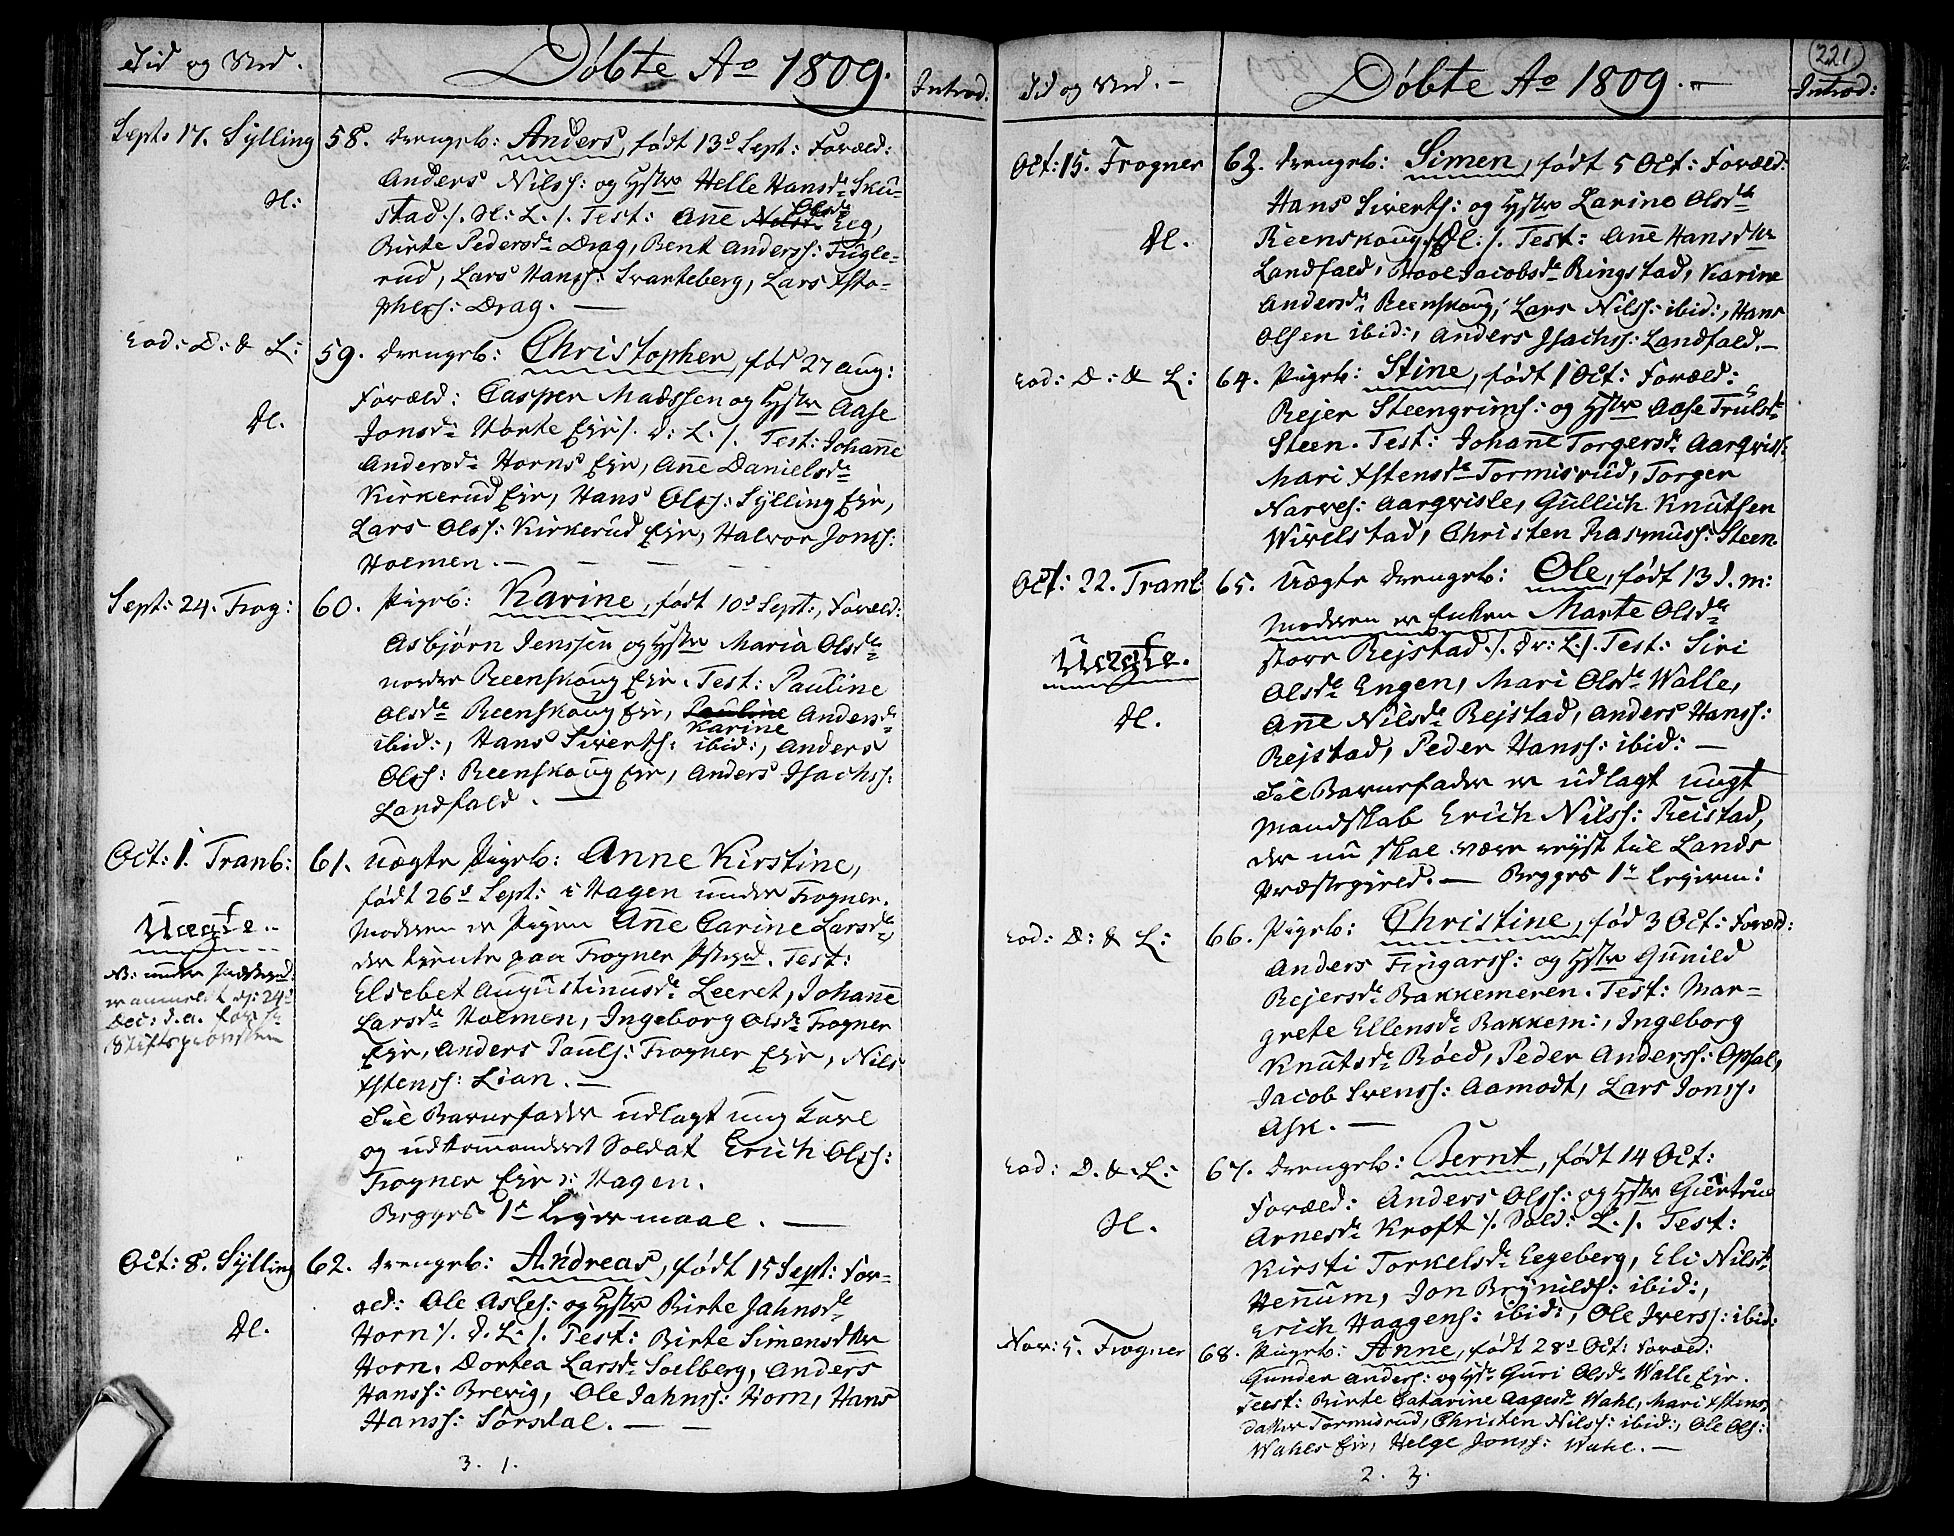 Tid og Sted.
Døbte Ao 1809.
Introd:
Sept: 17. Sylling
58. Drengeb: Anders, født 13d Sept: Foræld:
Anders Nilss: og Hstr Helle Hansd. Sku-
stad ./. H: L. /. Test: Anne Olsd. Eeg,
Birte Pedersd. Drag, Bent Anderss: Fugle-
rud, Lars Hanss: Svarteberg, Lars Xsto-
phers: Drag. —
eod: D: & L:
59. Drengeb: Christopher, fød 27 Aug:
Dl.
Foræld: Casper Madssen og Hstr Aase
Jonsd: Horte Eje ./. d: L: /. Test: Johanne
Andersd. Horns Eje, Anne Danielsd.
Kirkerud Eje, Hans Olss: Sylling Eje,
Lars Olss: Kirkerud Eje, Halvor Jonss:
Hoemen. —
Sept: 24. Frog:
60. Pigeb: Karine, født 10d Sept:, Foræld:
Asbjørn Jenssen og Hstr Maria Olsd.
nordre Reenskoug Eje. Test: Pauline
Olsd. Reenskoug Eje, Pauline Andersd.
Karine
ibid:, Hans Siverts: ibid:, Anders
Olss: Reenskoug Eje, Anders Isachs:
Landfald. —
Oct: 1. Tranb:
61. Uægte Pigeb: Anne Kirstine,
Uægte.
født 26d Sept: i Hagen under Frogner.
Moderen er Pigen Anne Carine Larsd.
der tiente paa Frogner Pstgrd. Test:
Elsebet Augustinusd. Leeret, Johanne
Larsd. Hoemen, Ingeborg Olsd. Frogner
Eje, Anders Pauls: Frogner Eje, Nils
Xstenss: Lian. —
Til Barnefader udlagt ung Karl
og udkommanderet Soldat Erich Olss:
Frogner Eje i Hagen.
Begges 1te Leiermaal. —
Oct: 8. Sylling
62. Drengeb: Andreas, født 15 Sept: For-
Dl.
æld: Ole Asles: og Hstr Birte Jahnsd.
Horn ./. d. L: /. Test: Birte Simensdtter
Horn, Dortea Larsd. Solberg, Anders
Hanss: Brevig, Ole Jahnss: Horn, Hans
Hanss: Sørsdal. —
3. 1.
221
Tid og Sted. —
Døbte Ao 1809. —
Introd:
Oct: 15. Frogner
63. Drengeb: Simen, født 5 Oct: Foræld:
Dl.
Hans Siverts: og Hstr Larine Olsd.
Reenskoug ./. Dl: /. Test: Anne Hansdtter
Landfald, Boel Jacobsd. Ringstad, Karine
Andersd. Reenskoug, Lars Nilss: ibid:, Hans
Olsen ibid:, Anders Isachs: Landfald. —
eod: D: & L:
64. Pigeb: Stine, født 1 Oct: Foræld:
Rejer Steengrims: og Hstr Aase Trulsd.
Steen. Test: Johanne Torgersd. Aarqvisl:
Mari Xstensd. Tormisrud, Torger
Narves: Aarqvisle, Gullich Knutsen
Wivelstad, Christen Rasmuss: Steen.
Oct: 22. Tranb
65. Uægte Drengeb: Ole, født 13 d. m:
Uægte.
Dl.
Moderen er Enken Marte Olsd.
store Rejstad ./. Dr: L: /. Test: Siri
Olsd. Engen, Mari Olsd. Walle,
Anne Nilsd. Rejstad, Anders Hanss:
Rejstad, Peder Hanss: ibid: —
Til Barnefader er udlagt ungt
Mandskab Erich Nilss: Reistad,
der nu skal være rejst til Lands
Præstegield. — Begges 1te Legerm:
eod: D: & L:
66. Pigeb: Christine, fød 3 Oct: Foræld:
Anders Fingarss: og Hstr Gunild
Rejersd. Bakkemeren. Test: Mar-
grete Ellensd. Bakkem:, Ingeborg
Knutsd. Røed, Peder Anderss: Opsal,
Jacob Svenss: Aamodt, Lars Jonss:
Ask. —
eod: D. & L:
67. Drengeb: Bernt, født 14 Oct:
Foræld: Anders Olss: og Hstr Giertrud
Arnesd. Kroft ./. Sold: L. /. Test:
Kirsti Torkelsd. Eegeberg, Eli Nilsd.
Hennum, Jon Brynilds: ibid:,
Erich Haagens: ibid:, Ole Ivers: ibid:
Nov: 5. Frogner
68. Pigeb: Anne, født 28d Oct: Foræld:
Gunder Anders: og Hst. Guri Olsd. Walle Eje.
Test: Birte Catarine Aagesd. Wahl, Mari Xstens
datter Tormidrud, Christen Nilss: ibid:, Ole Ols:
Wahls Eje, Helge Jonss: Wahl. —
2. 3.